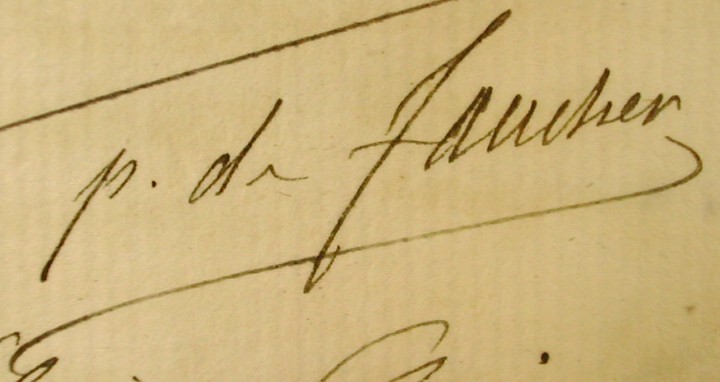 p. de faucher